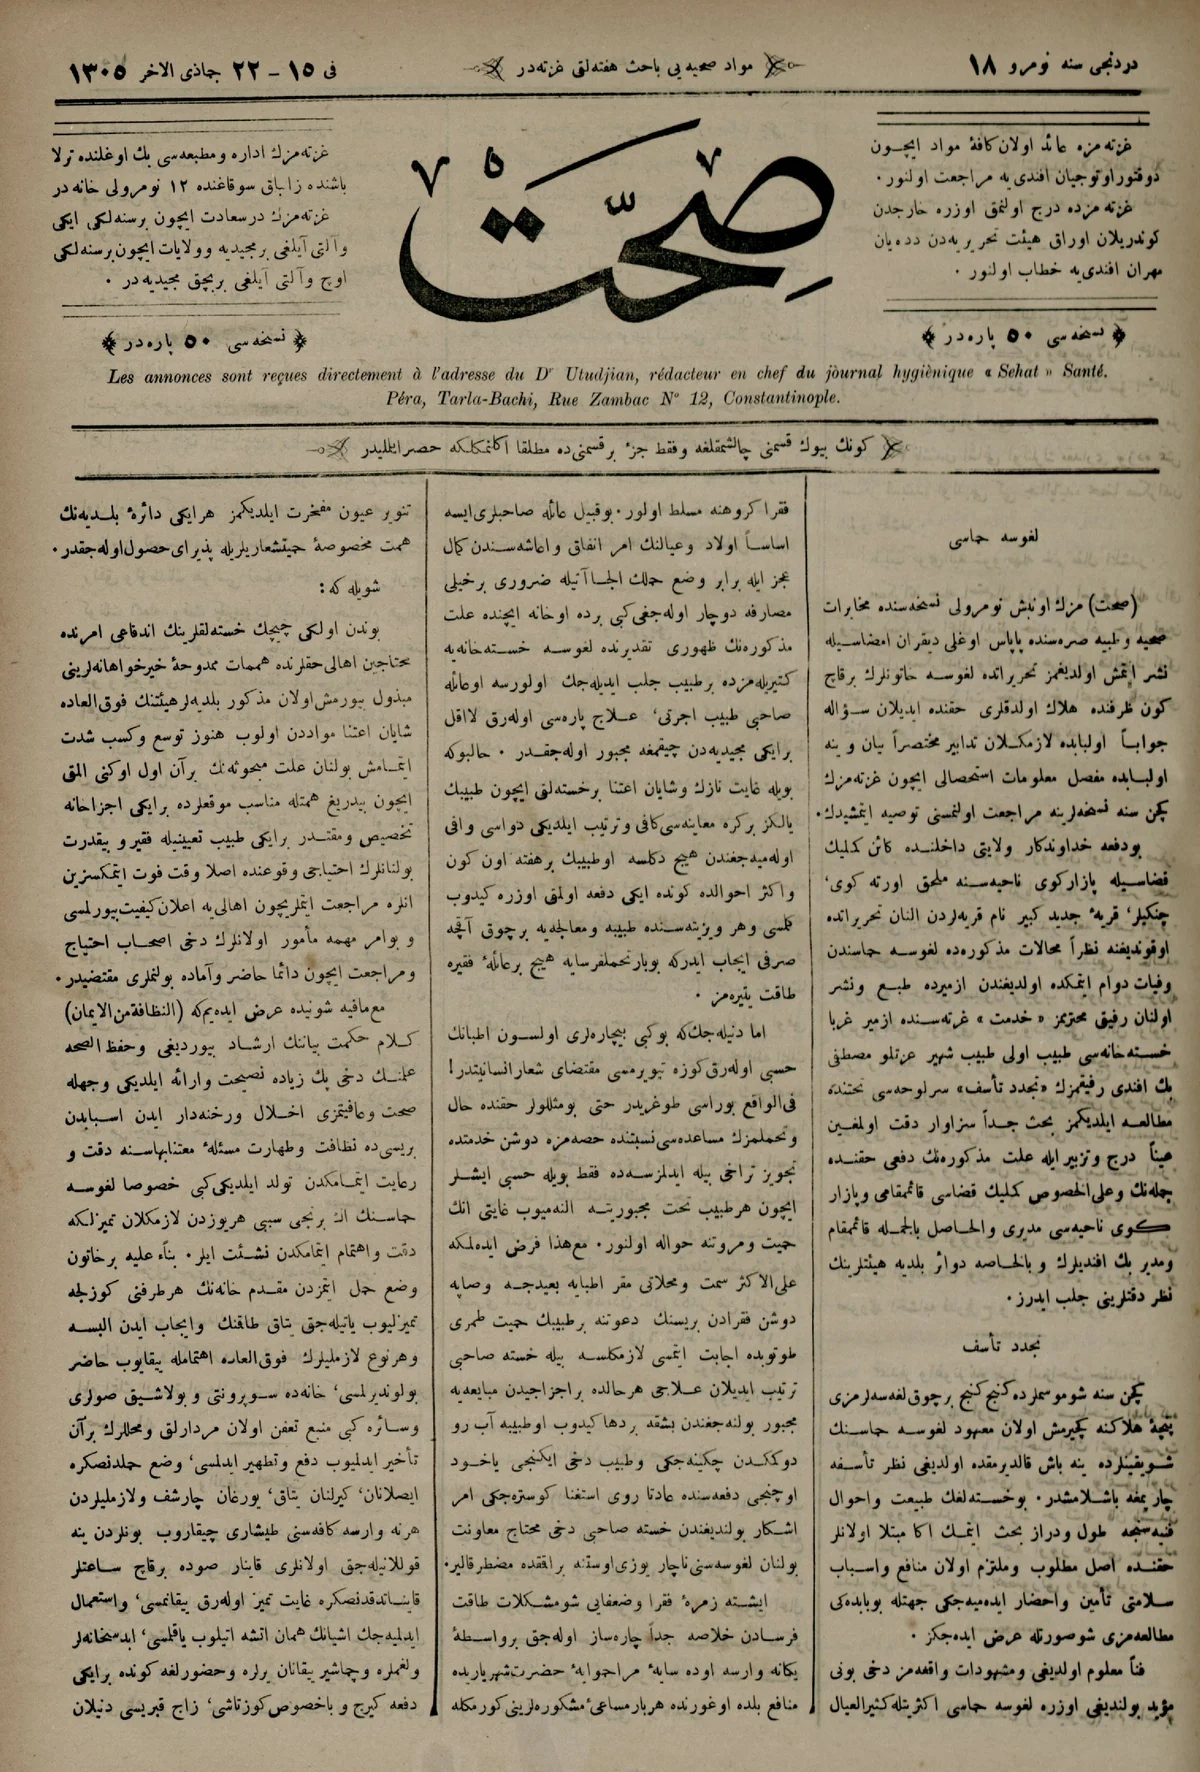 دردنجی سنه نومرو ١٨
مواد صحیه‌یی باحث هفته‌لق غزته‌در
فی ١٥ - ٢٢ جمادی الاخر ١٣٠٥
غزته‌مزه عائد اولان كافهٔ مواد ایچون
دوقتور اوتوجیان افندی‌یه مراجعت اولنور.
غزته‌مزده درج اولنمق اوزره خارجدن
كوندریلان اوراق هیئت تحریریه‌دن دده‌یان
مهران افندی‌یه خطاب اولنور .
نسخه‌سی ٥٠ پاره‌در
صحّت
غزته‌مزك اداره و مطبعه‌سی بك اوغلنده ترلا
باشنده زانباق سوقاغنده ١٢ نومرولی خانه‌در
غزته‌مزك درسعادت ایچون برسنه‌لكی ایكی
وآلتی آیلغی برمجیدیه وولایات ایچون برسنه‌لكی
اوچ وآلتی آیلغی بربچق مجیدیه‌در .
نسخه‌سی ٥٠ پاره‌در
Les annonces sont reçues directement à l'adresse du Dr Utudjian, rédacteur en chef du journal hygiènique « Sehat » Santé.
Péra, Tarla-Bachi, Rue Zambac No 12, Constantinople.
كونك بیوك قسمنی چالشمقلغه وفقط جزء برقسمنی‌ده مطلقا اكلنمكلكه حصر ایتملیدر
لغوسه حماسی
(صحت) مزك اونبش نومرولی نسخه‌سنده مخابرات
صحیه وطبیه صره‌سنده پاپاس اوغلی دیقران امضاسیله
نشر ایتمش اولدیغمز تحریراتده لغوسه خاتونلرك برقاچ
كون ظرفنده هلاك اولدقلری حقنده ایدیلان سؤاله
جواباً اولبابده لازمكلان تدابیر مختصراً بیان و ینه
اولبابده مفصل معلومات استحصالی ایچون غزته‌مزك
كچن سنه نسخه‌لرینه مراجعت اولنمسنی توصیه ایتمشیدك.
بودفعه خداوندكار ولایتی داخلنده كائن كملیك
قضاسیله پازاركوی ناحیه‌سنه ملحق اورته كوی،
چنكیلر، قریهٔ جدید كبیر نام قریه‌لردن النان تحریراتده
اوقوندیغنه نظراً محالات مذكوره‌ده لغوسه حماسندن
وفیات دوام ایتمكده اولدیغندن ازمیرده طبع ونشر
اولنان رفیق محترمز «خدمت» غزته‌سنده ازمیر غربا
خسته‌خانه‌سی طبیب اولی طبیب شهیر عزتلو مصطفی
بك افندی رفیقمزك «تجدد تأسف» سرلوحه‌سی تحتنده
مطالعه ایلدیكمز بحث جداً سزاوار دقت اولمغین
عیناً درج وتزبیر ایله علت مذكوره‌نك دفعی حقنده
جمله‌نك وعلی‌الخصوص كملیك قضاسی قائمقامی وپازار
كوی ناحیه‌سی مدیری والحاصل بالجمله قائمقام
ومدیر بك افندیلرك و بالخاصه دوائر بلدیه هیئتلرینك
نظر دقتلرینی جلب ایدرز.
تجدد تأسف
كچن سنه شوموسملرده كنج كنج برچوق لغسه‌لرمزی
پنجهٔ هلاكنه كچیرمش اولان معهود لغوسه حماسنك
شوبقینلرده ینه باش قالدیرمقده اولدیغی نظر تأسفه
چارپمغه باشلامشدر. بوخسته‌لغك طبیعت واحوال
فنیه‌سنجه طول ودراز بحث ایتمك اكا مبتلا اولانلر
حقنده اصل مطلوب وملتزم اولان منافع واسباب
سلامتی تأمین واحضار ایده‌میه‌جكی جهتله بوبابده‌كی
مطالعه‌مزی شوصورتله عرض ایده‌جكز .
فناً معلوم اولدیغی ومشهودات واقعه‌مز دخی بونی
مؤید بولندیغی اوزره لغوسه حماسی اكثریتله كثیرالعیال
فقرا كروهنه مسلط اولور. بوقبیل عائله صاحبلری ایسه
اساساً اولاد وعیالنك امر انفاق واعاشه‌سندن كمال
عجز ایله برابر وضع حملك الجا آتیله ضروری برخیلی
مصارفه دوچار اوله‌جغی كبی برده اوخانه ایچنده علت
مذكوره‌نك ظهوری تقدیرنده لغوسه خسته‌خانه‌یه
كتیریله‌مزده برطبیب جلب ایدیله‌جك اولورسه اوعائله
صاحبی طبیب اجرتی، علاج پاره‌سی اوله‌رق لااقل
برایكی مجیدیه‌دن چیقمغه مجبور اوله‌جقدر . حالبوكه
بویله غایت نازك وشایان اعتنا برخسته‌لقی ایچون طبیبك
یالكز بركره معاینه‌سی كافی وترتیب ایلدیكی دواسی وافی
اوله‌میه‌جغندن هیچ دكلسه اوطبیبك برهفته اون كون
واكثر احوالده كونده ایكی دفعه اولمق اوزره كیدوب
كلمسی وهر ویزیته‌سنده طبیبه ومعالجه‌یه برچوق آقچه
صرفی ایجاب ایدركه بوبارتحملفرسایه هیچ برعائلهٔ فقیره
طاقت یتیره‌مز .
اما دنیله‌جك‌كه بوكبی بیچاره‌لری اولسون اطبانك
حسبی اوله‌رق كوزه تیویرمسی مقتضای شعار انسانیتدر!
فی‌الواقع بوراسی طوغریدر حتی بومثللولر حقنده حال
وتحملمزك مساعده‌سی نسبتنده حصه‌مزه دوشن خدمتده
تجویز تراخی بیله ایدلمزسه‌ده فقط بویله حسبی ایشلر
ایچون هرطبیب تحت مجبوریته النه‌میوب غایتی انك
حمیت ومروتنه حواله اولنور. مع‌هذا فرض ایده‌لمكه
علی‌الاكثر سمت ومحلاتی مقر اطبایه بعیدجه وصاپه
دوشن فقرادن بریسنك دعوتنه برطبیبك حمیت طمری
طوتوبده اجابت ایتمسی لازمكلسه بیله خسته صاحبی
ترتیب ایدیلان علاجی هرحالده براجزاجیدن مبایعه‌یه
مجبور بولنه‌جغندن بشقه بردها كیدوب اوطبیبه آب رو
دوكمكدن چكینه‌جكی وطبیب دخی ایكنجی یاخود
اوچنجی دفعه‌سنده عادتا روی استغنا كوستره‌جكی امر
اشكار بولندیغندن خسته صاحبی دخی محتاج معاونت
بولنان لغوسه‌سنی ناچار یوزی‌اوستنه براقمقده مضطر قالیر.
ایشته زمرهٔ فقرا وضعفایی شومشكلات طاقت
فرسادن خلاصه جداً چاره‌ساز اوله‌جق برواسطهٔ
یكانه وارسه اوده سایهٔ مراحموایهٔ حضرت‌شهریاریده
منافع بلده اوغورنده هربار مساعیٔ مشكوره‌لرینی كورمكله
تنویر عیون مفخرت ایلدیكمز هرایكی دائرهٔ بلدیه‌نك
همت مخصوصهٔ حمیتشعاریلریله پذیرای حصول اوله‌جقدر.
شویله كه:
بوندن اولكی چیچك خسته‌لقلرینك اندفاعی امرنده
محتاجین اهالی حقلرنده همات ممدوحهٔ خیرخواهانه‌لرینی
مبذول بیورمش اولان مذكور بلدیه‌لر هیئتنك فوق‌العاده
شایان اعتنا موادندن اولوب هنوز توسع وكسب شدت
ایتمامش بولنان علت مبحوثه‌نك برآن اول اوكنی المق
ایچون بیدریغ همتله مناسب موقعلرده برایكی اجزاخانه
تخصیص ومقتدر برایكی طبیب تعیینیله فقیر و بیقدرت
بولنانلرك احتیاجی وقوعنده اصلا وقت فوت ایتمكسزین
انلره مراجعت ایتملریچون اهالی‌یه اعلان كیفیت بیورلمسی
و بوامر مهمه مأمور اولانلرك دخی اصحاب احتیاج
ومراجعت ایچون دائما حاضر وآماده بولنملری مقتضیدر.
مع‌مافیه شونیده عرض ایده‌یم‌كه (النظافة من الایمان)
كلام حكمت بیاننك ارشاد بیوردیغی وحفظ الصحه
علمنك دخی پك زیاده نصیحت وارائه ایلدیكی وجهله
صحت وعافیتمزی اخلال ورخنه‌دار ایدن اسبابدن
بریسی‌ده نظافت وطهارت مسئلهٔ معتنابهاسنه دقت و
رعایت ایتمامكدن تولد ایلدیكی‌كبی خصوصا لغوسه
حماسنك اك برنجی سببی هریوزدن لازمكلان تمیزلكه
دقت واهتمام ایتمامكدن نشئت ایلر. بناءً علیه برخاتون
وضع حمل ایتمزدن مقدم خانه‌نك هرطرفنی كوزلجه
تمیزلیوب یاتیله‌جق یتاق طاقنك وایجاب ایدن البسه
وهرنوع لازملیلرك فوق‌العاده اهتمامله ییقانوب حاضر
بولوندیرلمسی، خانه‌ده سوپرونتی وبولاشیق صولری
وسائره كبی منبع تعفن اولان مردارلق ومحللرك برآن
تأخیر ایدلمیوب دفع وتطهیر ایدلمسی، وضع حملدنصكره
ایصلانان، كیرلنان یتاق، یورغان چارشف ولازملیلردن
هرنه وارسه كافه‌سنی طیشاری چیقاروب بونلردن ینه
قوللانیله‌جق اولانلری قاینار صوده برقاچ ساعتلر
قایناتدقدنصكره غایت تمیز اوله‌رق ییقانمسی، واستعمال
ایدلمیه‌جك اشیانك همان اتشه اتیلوب یاقلمسی، ابدستخانه‌لر
ولغملره وچماشیر ییقانان یرلره وحضور لغه كونده برایكی
دفعه كیرچ و باخصوص كوزتاشی، زاج قبریسی دنیلان